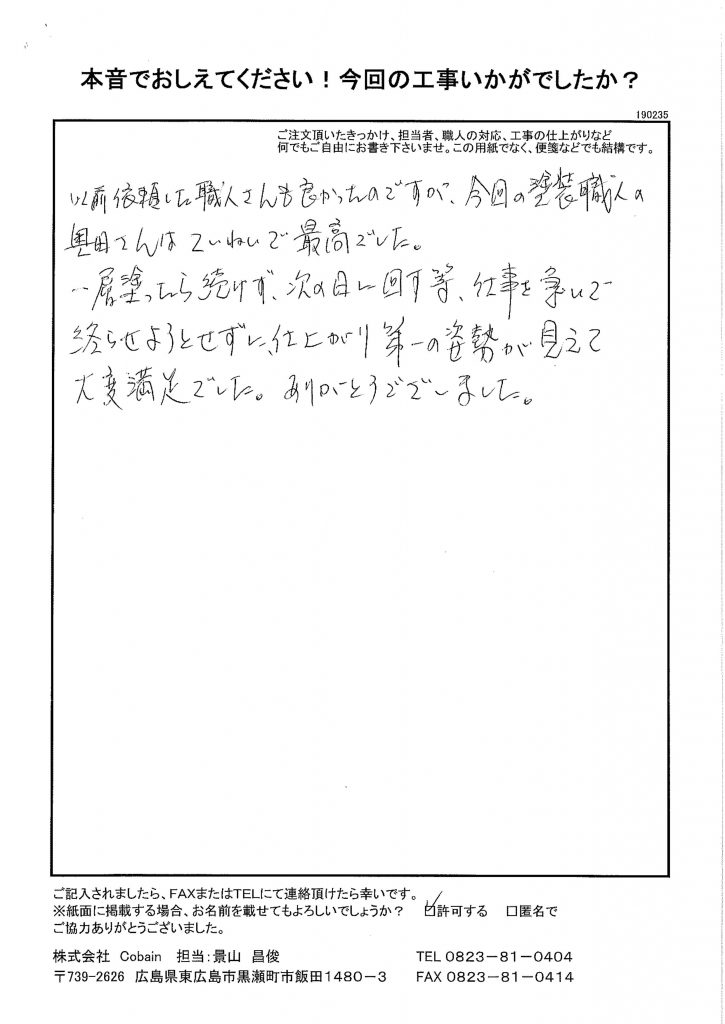 本音でおしえてください！今回の工事いかがでしたか？
190235
ご注文頂いたきっかけ、担当者、職人の対応、工事の仕上がりなど
何でもご自由にお書き下さいませ。この用紙でなく、便箋などでも結構です。
以前依頼した職人さんも良かったのですが、今回の塗装職人の
奥田さんはていねいで最高でした。
一層塗ったら続けず、次の日に回す等、仕事を急いで
終らせようとせずに、仕上がり第一の姿勢が見えて
大変満足でした。ありがとうございました。
ご記入されましたら、FAXまたはTELにて連絡頂けたら幸いです。
※紙面に掲載する場合、お名前を載せてもよろしいでしょうか？ ☑許可する □匿名で
ご協力ありがとうございました。
株式会社 Cobain 担当：景山 昌俊 TEL 0823－81－0404
〒739-2626 広島県東広島市黒瀬町市飯田1480－3 FAX 0823－81－0414